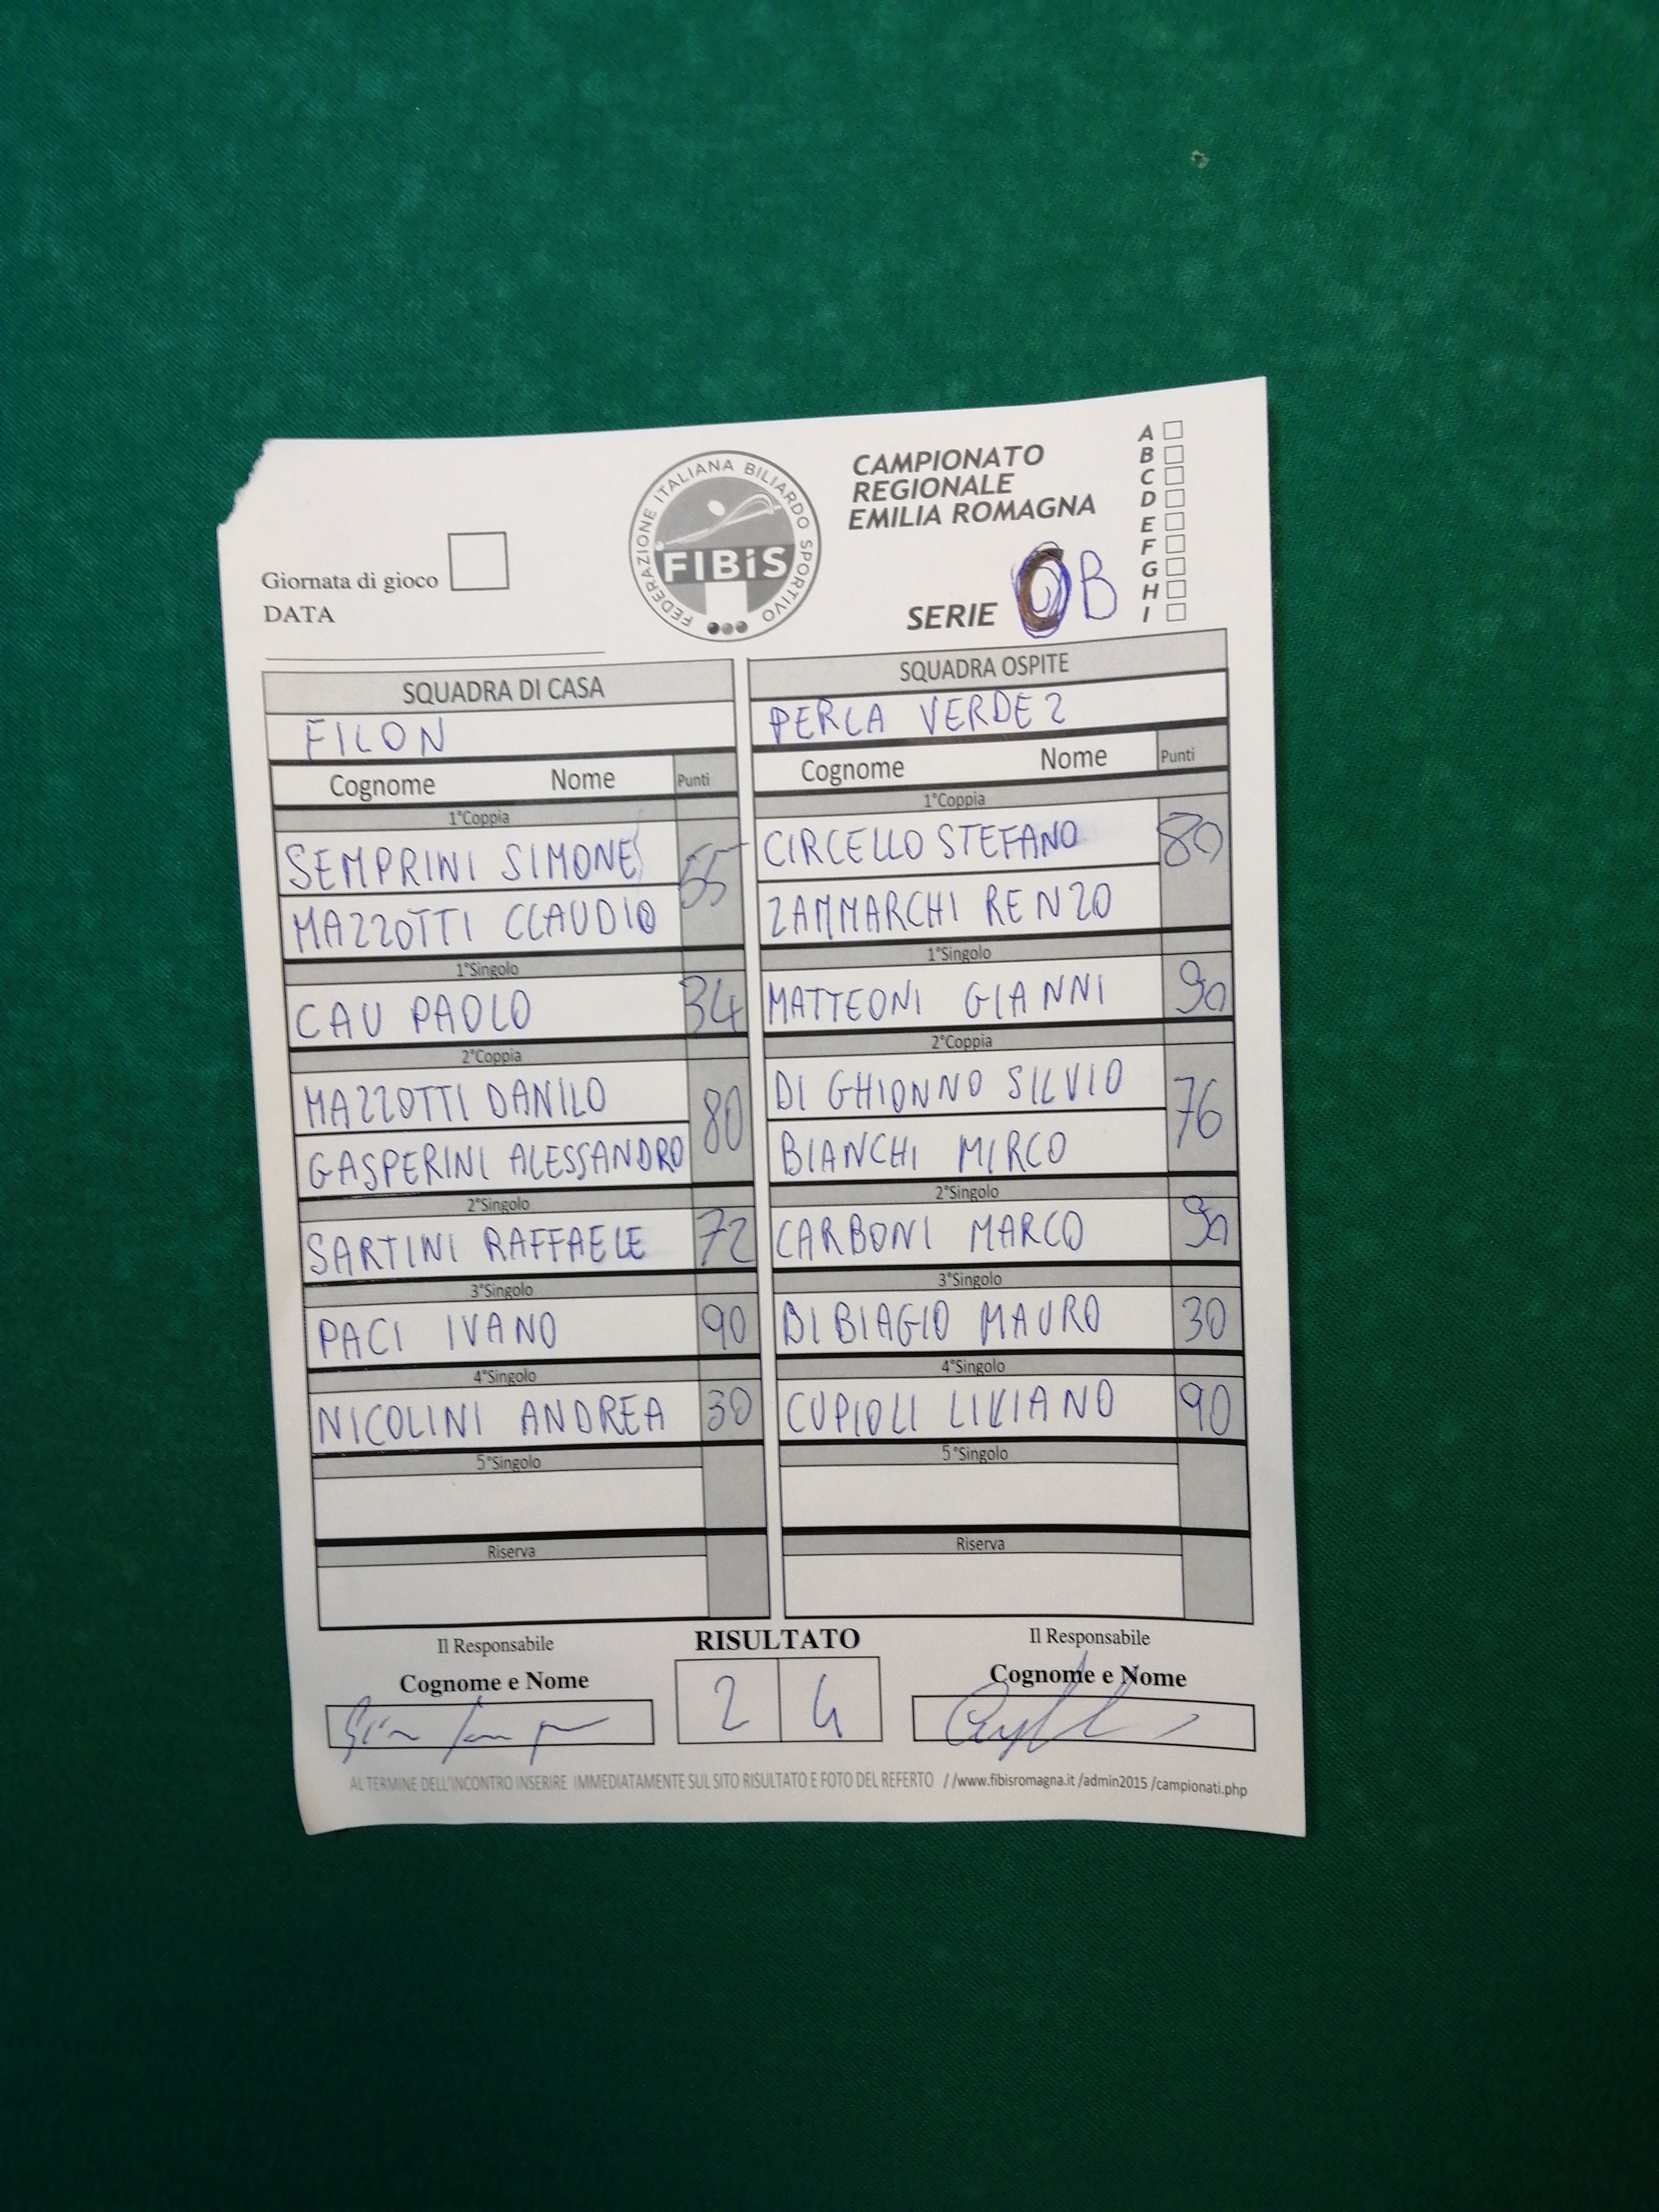 CAMPIONATO
REGIONALE
EMILIA ROMAGNA
SERIE B
A
B
C
D
E
F
G
H
I
FEDERAZIONE ITALIANA BILIARDO SPORTIVO
FIBiS
Giornata di gioco
DATA
SQUADRA DI CASA
FILON
Cognome Nome Punti
1°Coppia
SEMPRINI SIMONE 55
MAZZOTTI CLAUDIO
1°Singolo
CAU PAOLO 34
2°Coppia
MAZZOTTI DANILO 80
GASPERINI ALESSANDRO
2°Singolo
SARTINI RAFFAELE 72
3°Singolo
PACI IVANO 90
4°Singolo
NICOLINI ANDREA 30
5°Singolo
Riserva
SQUADRA OSPITE
PERLA VERDE 2
Cognome Nome Punti
1°Coppia
CIRCELLO STEFANO 80
ZAMMARCHI RENZO
1°Singolo
MATTEONI GIANNI 90
2°Coppia
DI GHIONNO SILVIO 76
BIANCHI MIRCO
2°Singolo
CARBONI MARCO 90
3°Singolo
DI BIAGIO MAURO 30
4°Singolo
CUPIOLI LIVIANO 90
5°Singolo
Riserva
Il Responsabile
Cognome e Nome
RISULTATO
2 4
Il Responsabile
Cognome e Nome
AL TERMINE DELL'INCONTRO INSERIRE IMMEDIATAMENTE SUL SITO RISULTATO E FOTO DEL REFERTO //www.fibisromagna.it /admin2015 /campionati.php